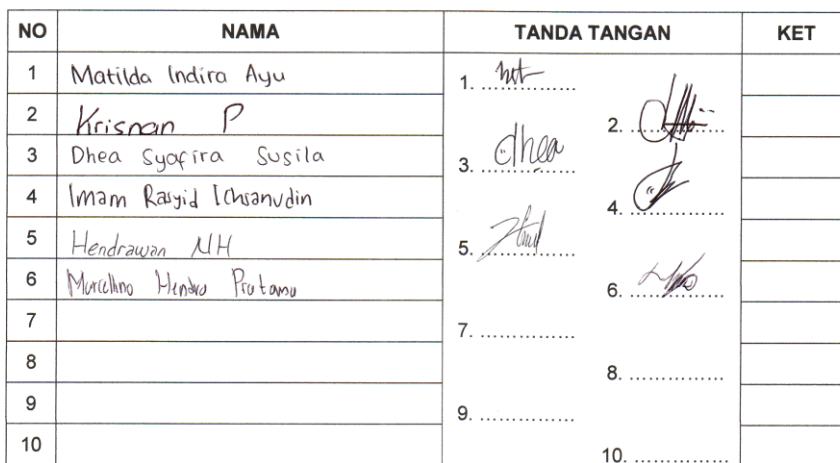 NO NAMA TANDA TANGAN KET
1 Matilda Indira Ayu 1. ...............
2 Krisnan P 2. ...............
3 Dhea Syafira Susila 3. dhea ...............
4 Imam Rasyid Ichsanudin 4. ...............
5 Hendrawan NH 5. ...............
6 Marcellino Hendro Pratama 6. ...............
7 7. ...............
8 8. ...............
9 9. ...............
10 10. ...............